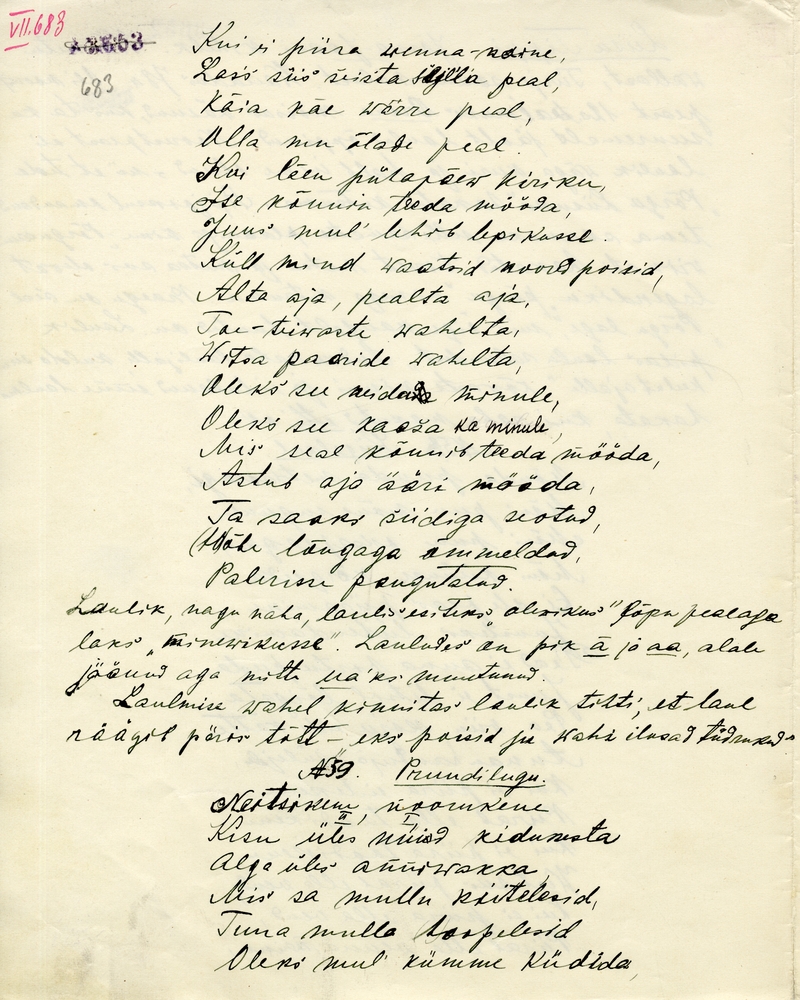 VII.683
683
Kui ei piira wenna-naine,
Lass siis seista selja peal,
Käia käe wärre peal,
Olla mu õlade peal.
Kui lään pühapäew kiriku,
Ise kõnnin teeda mööda,
Juus mul' lehib lepikusse.
Küll mind waatsid noored poisid,
Alta aja, pealta aja,
Toe-teiwaste wahelta,
Witsa paaride wahelta,
Oleks see neida minule,
Oleks see kaaža ka minule,
Mis seal kõnnib teeda mööda,
Astub aja ääri mööda,
Ta saaks siidiga seotud,
Wööhe lõngaga ömmeldud,
Palerisse pangutatud.
Laulik, nagu näha, laulis esiteks "olewikus" lõpu pealaga
laks „minewikusse". Lauludes on pik ä ja aa, alale
jäänud aga mitte ua'ks muutunud.
Laulmise wahel kinnitas laulik tihti, et laul
räägib päris tõtt – eks poisid ju wahi ilusad tüdrukud"
№59. Pruudilugu.
Neitsikene, noorukene
II I
Kisu üles nüüd kidusesta
Alga üles anniwakka,
Mis sa mullu kiitelesid,
Tuna mulla hoopelesid
Oleks mul' kümme küdida,